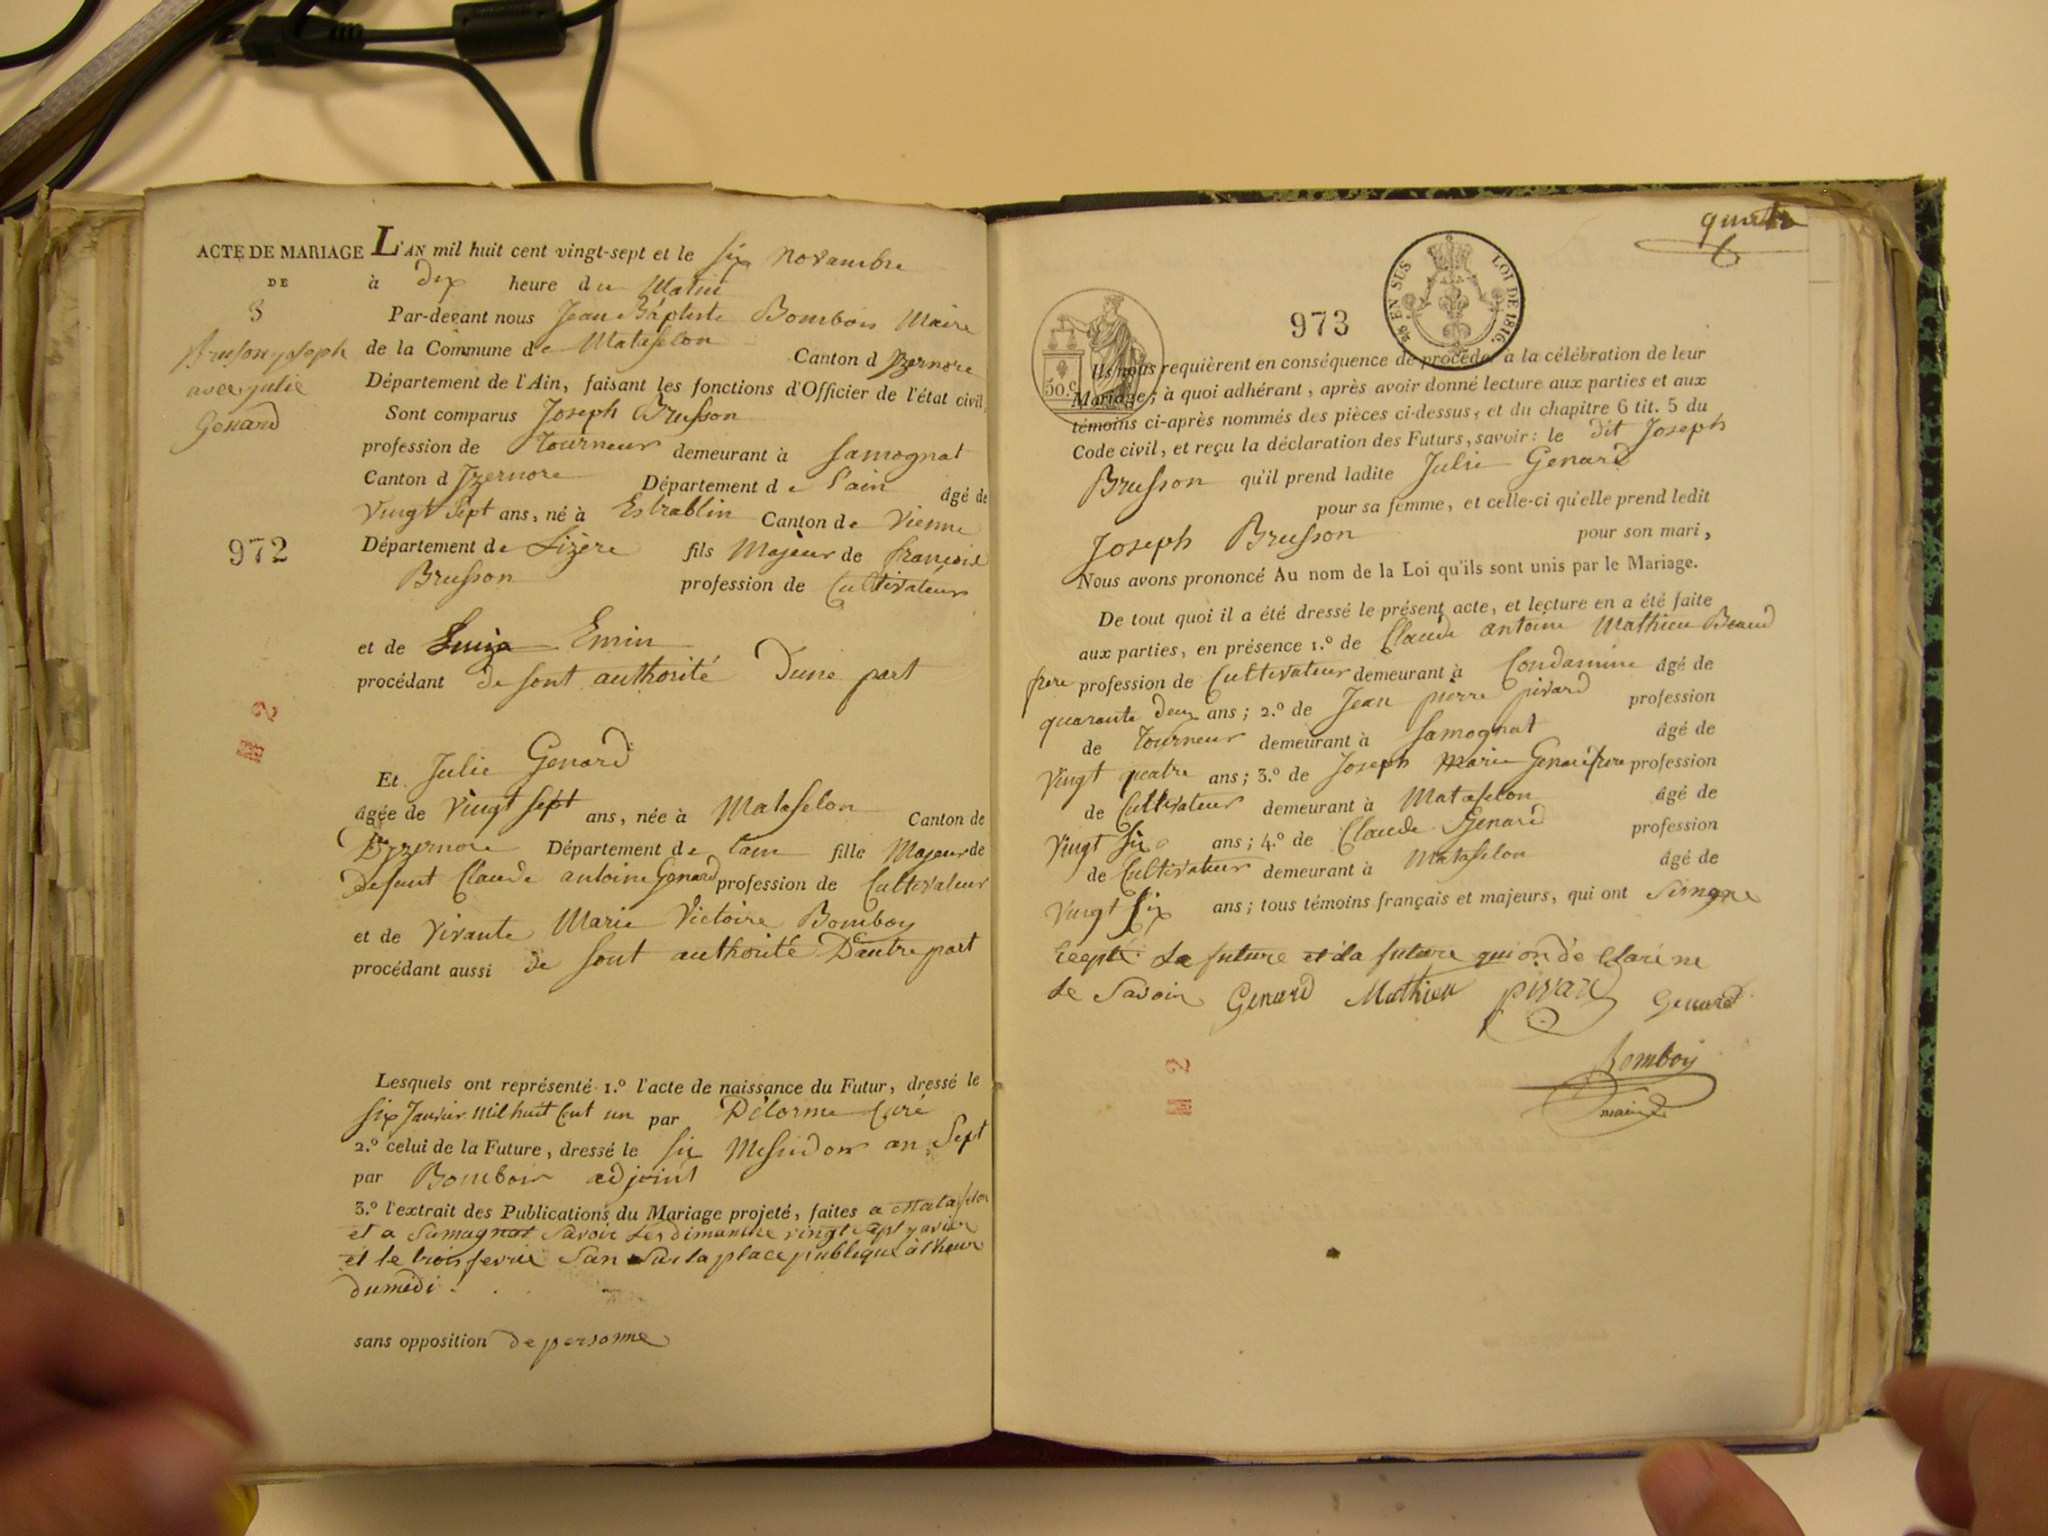 ACTE DE MARIAGE
DE
8
Brusson joseph
avec julie
Genard
972
L'AN mil huit cent vingt-sept et le six novambre
à dix heure du Matin
Par-devant nous Jean Báptiste Bombois Maire
de la Commune de Matafelon Canton d Izernore
Département de l'Ain, faisant les fonctions d'Officier de l'état civil,
Sont comparus Joseph Brusson
profession de Tourneur demeurant à Samognat
Canton d Izernore Département de l'ain âgé de
Vingt Sept ans, né à Estrablin Canton de Vienne
Département de Lizère fils Majeur de francois
Brusson profession de Cultivateur
et de Luiza Emin
procédant de sont authorité Dune part
Et Julie Genard
âgée de vingt sept ans, née à Matafelon Canton de
Dizernore Département de lain fille Majeur de
Defunt Claude antoine Genard profession de Cultivateur
et de vivante Marie Victoire Bomboy
procédant aussi de sont authorité Dautre part
Lesquels ont représenté 1.º l'acte de naissance du Futur, dressé le
six Janvier Mil huit Cent un par Délorme Curé
2.º celui de la Future, dressé le six Messidor an Sept
par Bombois adjoint
3.º l'extrait des Publications du Mariage projeté, faites a Matafelon
et a Samagnat Savoir Les dimanche vingt sept
et le trois San Sur la place publique à l'heur
du midi.
sans opposition de personne
2
quatr
973
48 EN SUS
LOI DE 1816.
50.c
Ils nous requièrent en conséquence de procéder à la célébration de leur
Mariage; à quoi adhérant, après avoir donné lecture aux parties et aux
témoins ci-après nommés des pièces ci-dessus, et du chapitre 6 tit. 5 du
Code civil, et reçu la déclaration des Futurs, savoir: le dit Joseph
Brusson qu'il prend ladite Julie Genard
pour sa femme, et celle-ci qu'elle prend ledit
Joseph Brusson pour son mari,
Nous avons prononcé Au nom de la Loi qu'ils sont unis par le Mariage.
De tout quoi il a été dressé le présent acte, et lecture en a été faite
aux parties, en présence 1.º de Claude antoine Mathieu Beaud
frere profession de Cultivateur demeurant à Condamine âgé de
quarante deux ans; 2.º de Jean pierre pivard profession
de Tourneur demeurant à Samognat âgé de
Vingt quatre ans; 3.º de Joseph Marie Genard frere profession
de Cultivateur demeurant à Matafelon âgé de
Vingt Six ans; 4.º de Claude Genard profession
de Cultivateur demeurant à Matafelon âgé de
Vingt Six ans; tous témoins français et majeurs, qui ont Simgne
Cepté Le future et la future qui on dé Claré ne
Le Savoir Genard Mathieu pivard Genard
Bomboy
maire
2